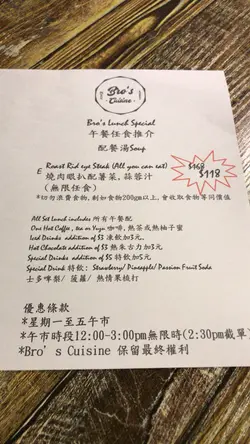 Bro's
Cuisine
Bro's Lunch Special
午餐任食推介
配餐湯Soup
E Roast Rid eye Steak (All you can eat)
燒肉眼扒配薯菜, 蒜蓉汁
(無限任食)
$168
$118
*切勿浪費食物, 剩如食物200gm以上, 會收取食物等同價值
All Set Lunch includes 所有午餐配
One Hot Coffee, tea or Yuzu 咖啡, 熱茶或熱柚子蜜
Iced Drinks addition of $3 凍飲加3元.
Hot Chocolate addition of $3 熱朱古力加3元
Special Drinks addition of $5 特飲加5元
Special Drink 特飲: Strawberry/ Pineapple/ Passion Fruit Soda
士多啤梨/ 菠蘿/ 熱情果梳打
優惠條款
*星期一至五午市
*午市時段12:00-3:00pm無限時(2:30pm截單)
*Bro's Cuisine 保留最終權利